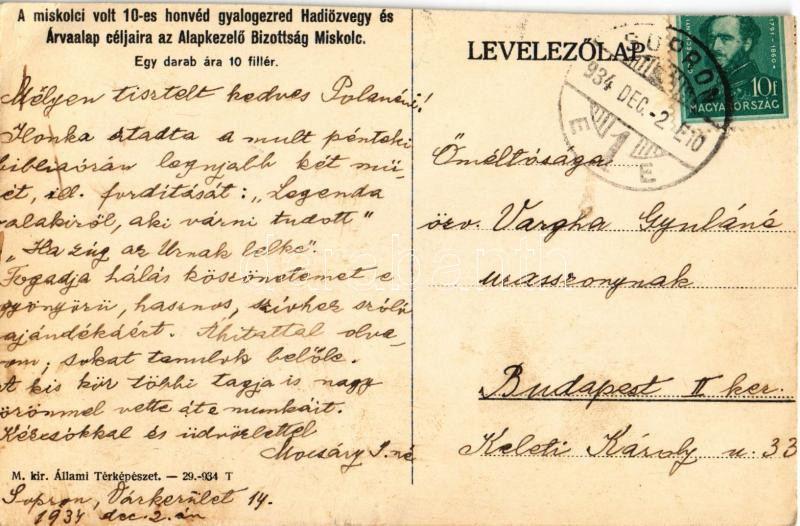 A miskolci volt 10-es honvéd gyalogezred Hadiözvegy és
Árvaalap céljaira az Alapkezelő Bizottság Miskolc.
Egy darab ára 10 fillér.
Mélyen tisztelt kedves Pola néni!
Ilonka átadta a mult pénteki
bibliaórán legujabb két mű-
ét, ill. fordítását: „Legenda
valakiről, aki várni tudott”
„Ha zúg az Urnak lelke”.
Fogadja hálás köszönetemet e
gyönyörü, hasznos, szívhez szóló
ajándékáért. Áhitattal olva-
om, sokat tanulok belőle.
A kis kör többi tagja is nagy
örömmel vette át e munkáit.
Kézcsókkal és üdvözlettel
Mocsáry
M. kir. Állami Térképészet. — 29.-934 T
Sopron, Várkerület 14.
1934 dec. 2.-án
LEVELEZŐLAP
SOPRON
934 DEC.-2. E10
1
E E
SZÉCHENYI
1791-1860
10f
MAGYARORSZÁG
Őméltósága
özv. Vargha Gyuláné
urasszonynak
Budapest II ker.
Keleti Károly u. 33
darabanth